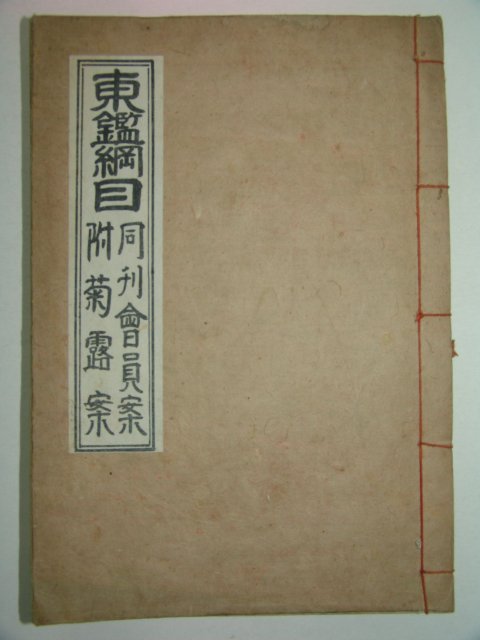 東鑑綱目
同刊會員案
附菊露案